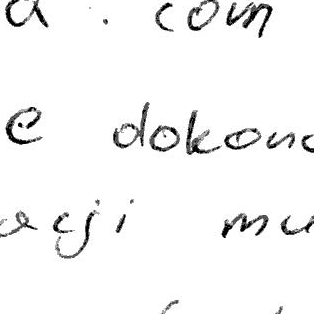 a . com
e dokona
acji mu